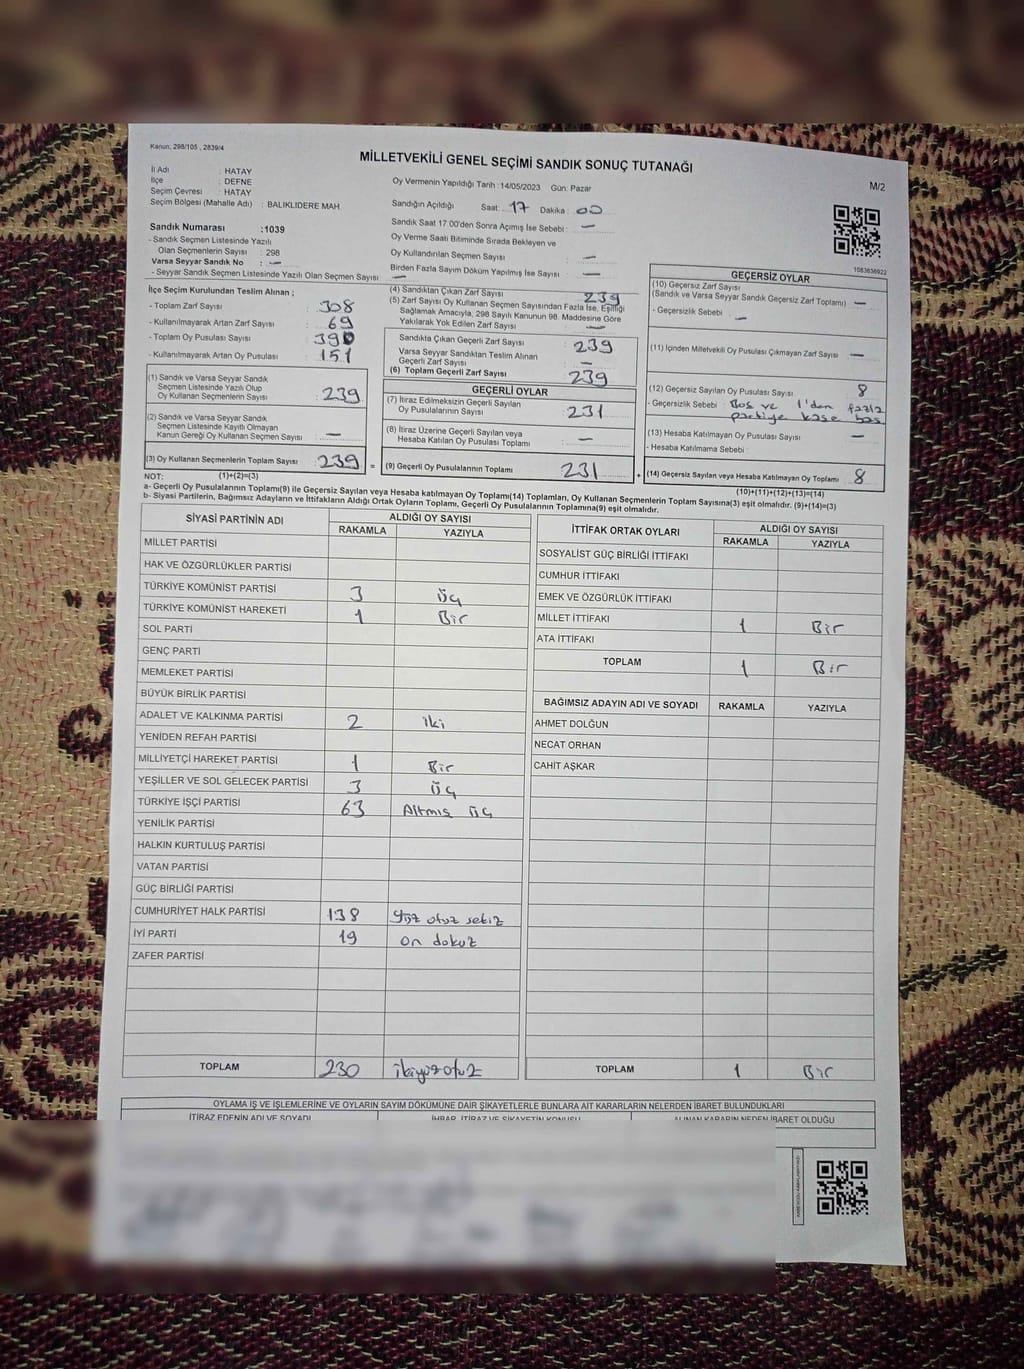 Kanun; 298/105 , 2839/4
MİLLETVEKİLİ GENEL SEÇİMİ SANDIK SONUÇ TUTANAĞI
M/2
İl Adı : HATAY
İlçe : DEFNE
Seçim Çevresi : HATAY
Seçim Bölgesi (Mahalle Adı) : BALIKLIDERE MAH.
Oy Vermenin Yapıldığı Tarih :14/05/2023 Gün: Pazar
Sandığın Açıldığı Saat: 17 Dakika : 00
Sandık Saat 17.00'den Sonra Açımış İse Sebebi : —
Oy Verme Saati Bitiminde Sırada Bekleyen ve
Oy Kullandırılan Seçmen Sayısı : —
Birden Fazla Sayım Döküm Yapılmış İse Sayısı : —
Sandık Numarası :1039
- Sandık Seçmen Listesinde Yazılı
Olan Seçmenlerin Sayısı : 298
Varsa Seyyar Sandık No : —
- Seyyar Sandık Seçmen Listesinde Yazılı Olan Seçmen Sayısı : —
1083636922
İlçe Seçim Kurulundan Teslim Alınan ;
- Toplam Zarf Sayısı : 308
- Kullanılmayarak Artan Zarf Sayısı : 69
- Toplam Oy Pusulası Sayısı : 390
- Kullanılmayarak Artan Oy Pusulası : 151
(1) Sandık ve Varsa Seyyar Sandık
Seçmen Listesinde Yazılı Olup
Oy Kullanan Seçmenlerin Sayısı : 239
(2) Sandık ve Varsa Seyyar Sandık
Seçmen Listesinde Kayıtlı Olmayan
Kanun Gereği Oy Kullanan Seçmen Sayısı : —
(3) Oy Kullanan Seçmenlerin Toplam Sayısı : 239
(4) Sandıktan Çıkan Zarf Sayısı : 239
(5) Zarf Sayısı Oy Kullanan Seçmen Sayısından Fazla İse, Eşitliği
Sağlamak Amacıyla, 298 Sayılı Kanunun 98. Maddesine Göre
Yakılarak Yok Edilen Zarf Sayısı : —
Sandıkta Çıkan Geçerli Zarf Sayısı : 239
Varsa Seyyar Sandıktan Teslim Alınan
Geçerli Zarf Sayısı : —
(6) Toplam Geçerli Zarf Sayısı : 239
GEÇERLİ OYLAR
(7) İtiraz Edilmeksizin Geçerli Sayılan
Oy Pusulalarının Sayısı : 231
(8) İtiraz Üzerine Geçerli Sayılan veya
Hesaba Katılan Oy Pusulası Toplamı : —
= (9) Geçerli Oy Pusulalarının Toplamı : 231
GEÇERSİZ OYLAR
(10) Geçersiz Zarf Sayısı
(Sandık ve Varsa Seyyar Sandık Geçersiz Zarf Toplamı) : —
- Geçersizlik Sebebi : —
(11) İçinden Milletvekili Oy Pusulası Çıkmayan Zarf Sayısı : —
(12) Geçersiz Sayılan Oy Pusulası Sayısı : 8
- Geçersizlik Sebebi : Boş ve 1'den fazla
partiye kaşe bas
(13) Hesaba Katılmayan Oy Pusulası Sayısı : —
- Hesaba Katılmama Sebebi :
+ (14) Geçersiz Sayılan veya Hesaba Katılmayan Oy Toplamı : 8
NOT: (1)+(2)=(3) (10)+(11)+(12)+(13)=(14)
a- Geçerli Oy Pusulalarının Toplamı(9) ile Geçersiz Sayılan veya Hesaba katılmayan Oy Toplamı(14) Toplamları, Oy Kullanan Seçmenlerin Toplam Sayısına(3) eşit olmalıdır. (9)+(14)=(3)
b- Siyasi Partilerin, Bağımsız Adayların ve İttifakların Aldığı Ortak Oyların Toplamı, Geçerli Oy Pusulalarının Toplamına(9) eşit olmalıdır.
SİYASİ PARTİNİN ADI ALDIĞI OY SAYISI
RAKAMLA YAZIYLA
MİLLET PARTİSİ
HAK VE ÖZGÜRLÜKLER PARTİSİ
TÜRKİYE KOMÜNİST PARTİSİ 3 Üç
TÜRKİYE KOMÜNİST HAREKETİ 1 Bir
SOL PARTİ
GENÇ PARTİ
MEMLEKET PARTİSİ
BÜYÜK BİRLİK PARTİSİ
ADALET VE KALKINMA PARTİSİ 2 iki
YENİDEN REFAH PARTİSİ
MİLLİYETÇİ HAREKET PARTİSİ 1 Bir
YEŞİLLER VE SOL GELECEK PARTİSİ 3 Üç
TÜRKİYE İŞÇİ PARTİSİ 63 Altmış üç
YENİLİK PARTİSİ
HALKIN KURTULUŞ PARTİSİ
VATAN PARTİSİ
GÜÇ BİRLİĞİ PARTİSİ
CUMHURİYET HALK PARTİSİ 138 Yüz otuz sekiz
İYİ PARTİ 19 on dokuz
ZAFER PARTİSİ
TOPLAM 230 ikiyüzotuz
İTTİFAK ORTAK OYLARI ALDIĞI OY SAYISI
RAKAMLA YAZIYLA
SOSYALİST GÜÇ BİRLİĞİ İTTİFAKI
CUMHUR İTTİFAKI
EMEK VE ÖZGÜRLÜK İTTİFAKI
MİLLET İTTİFAKI 1 Bir
ATA İTTİFAKI
TOPLAM 1 Bir
BAĞIMSIZ ADAYIN ADI VE SOYADI RAKAMLA YAZIYLA
AHMET DOLĞUN
NECAT ORHAN
CAHİT AŞKAR
TOPLAM 1 Bir
OYLAMA İŞ VE İŞLEMLERİNE VE OYLARIN SAYIM DÖKÜMÜNE DAİR ŞİKAYETLERLE BUNLARA AİT KARARLARIN NELERDEN İBARET BULUNDUKLARI
İTİRAZ EDENİN ADI VE SOYADI İHBAR, İTİRAZ VE ŞİKAYETİN KONUSU ALINAN KARARIN NEDEN İBARET OLDUĞU